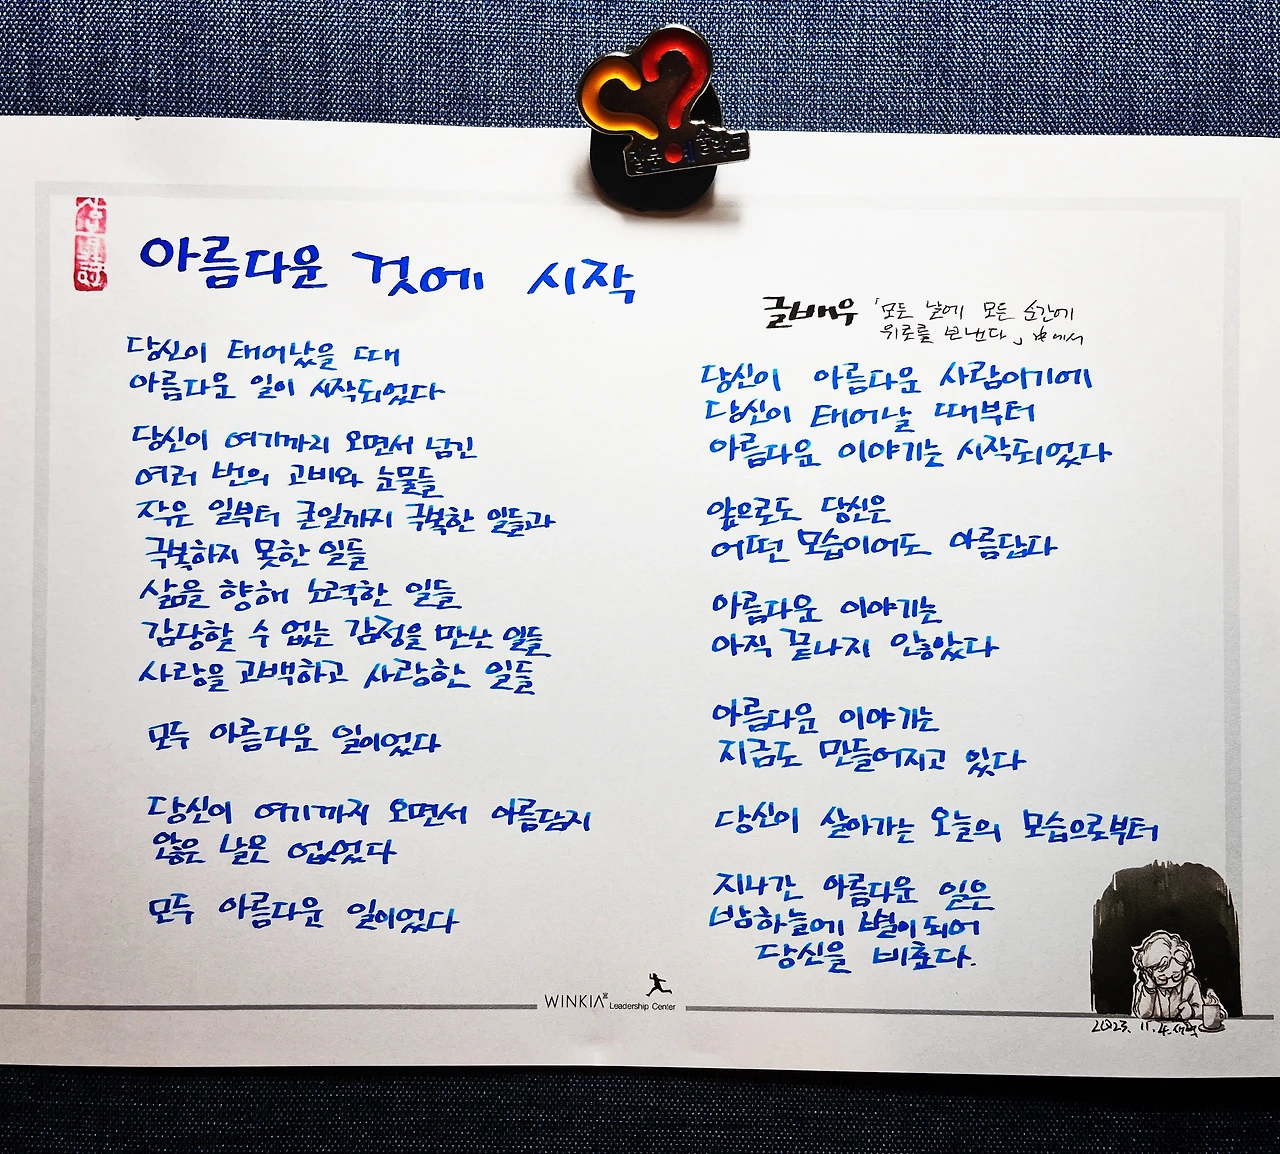 아름다운 것에 시작
글배우 「모든 날에 모든 순간에
위로를 보낸다」 中에서
당신이 태어났을 때
아름다운 일이 시작되었다
당신이 여기까지 오면서 넘긴
여러 번의 고비와 눈물들
작은 일부터 큰일까지 극복한 일들과
극복하지 못한 일들
삶을 향해 노력한 일들
감당할 수 없는 감정을 만난 일들
사랑을 고백하고 사랑한 일들
모두 아름다운 일이었다
당신이 여기까지 오면서 아름답지
않은 날은 없었다
모두 아름다운 일이었다
당신이 아름다운 사람이기에
당신이 태어날 때부터
아름다운 이야기는 시작되었다
앞으로도 당신은
어떤 모습이어도 아름답다
아름다운 이야기는
아직 끝나지 않았다
아름다운 이야기는
지금도 만들어지고 있다
당신이 살아가는 오늘의 모습으로부터
지나간 아름다운 일은
밤하늘에 별이 되어
당신을 비춘다.
WINKIA Leadership Center
2023. 11. 4. 새벽